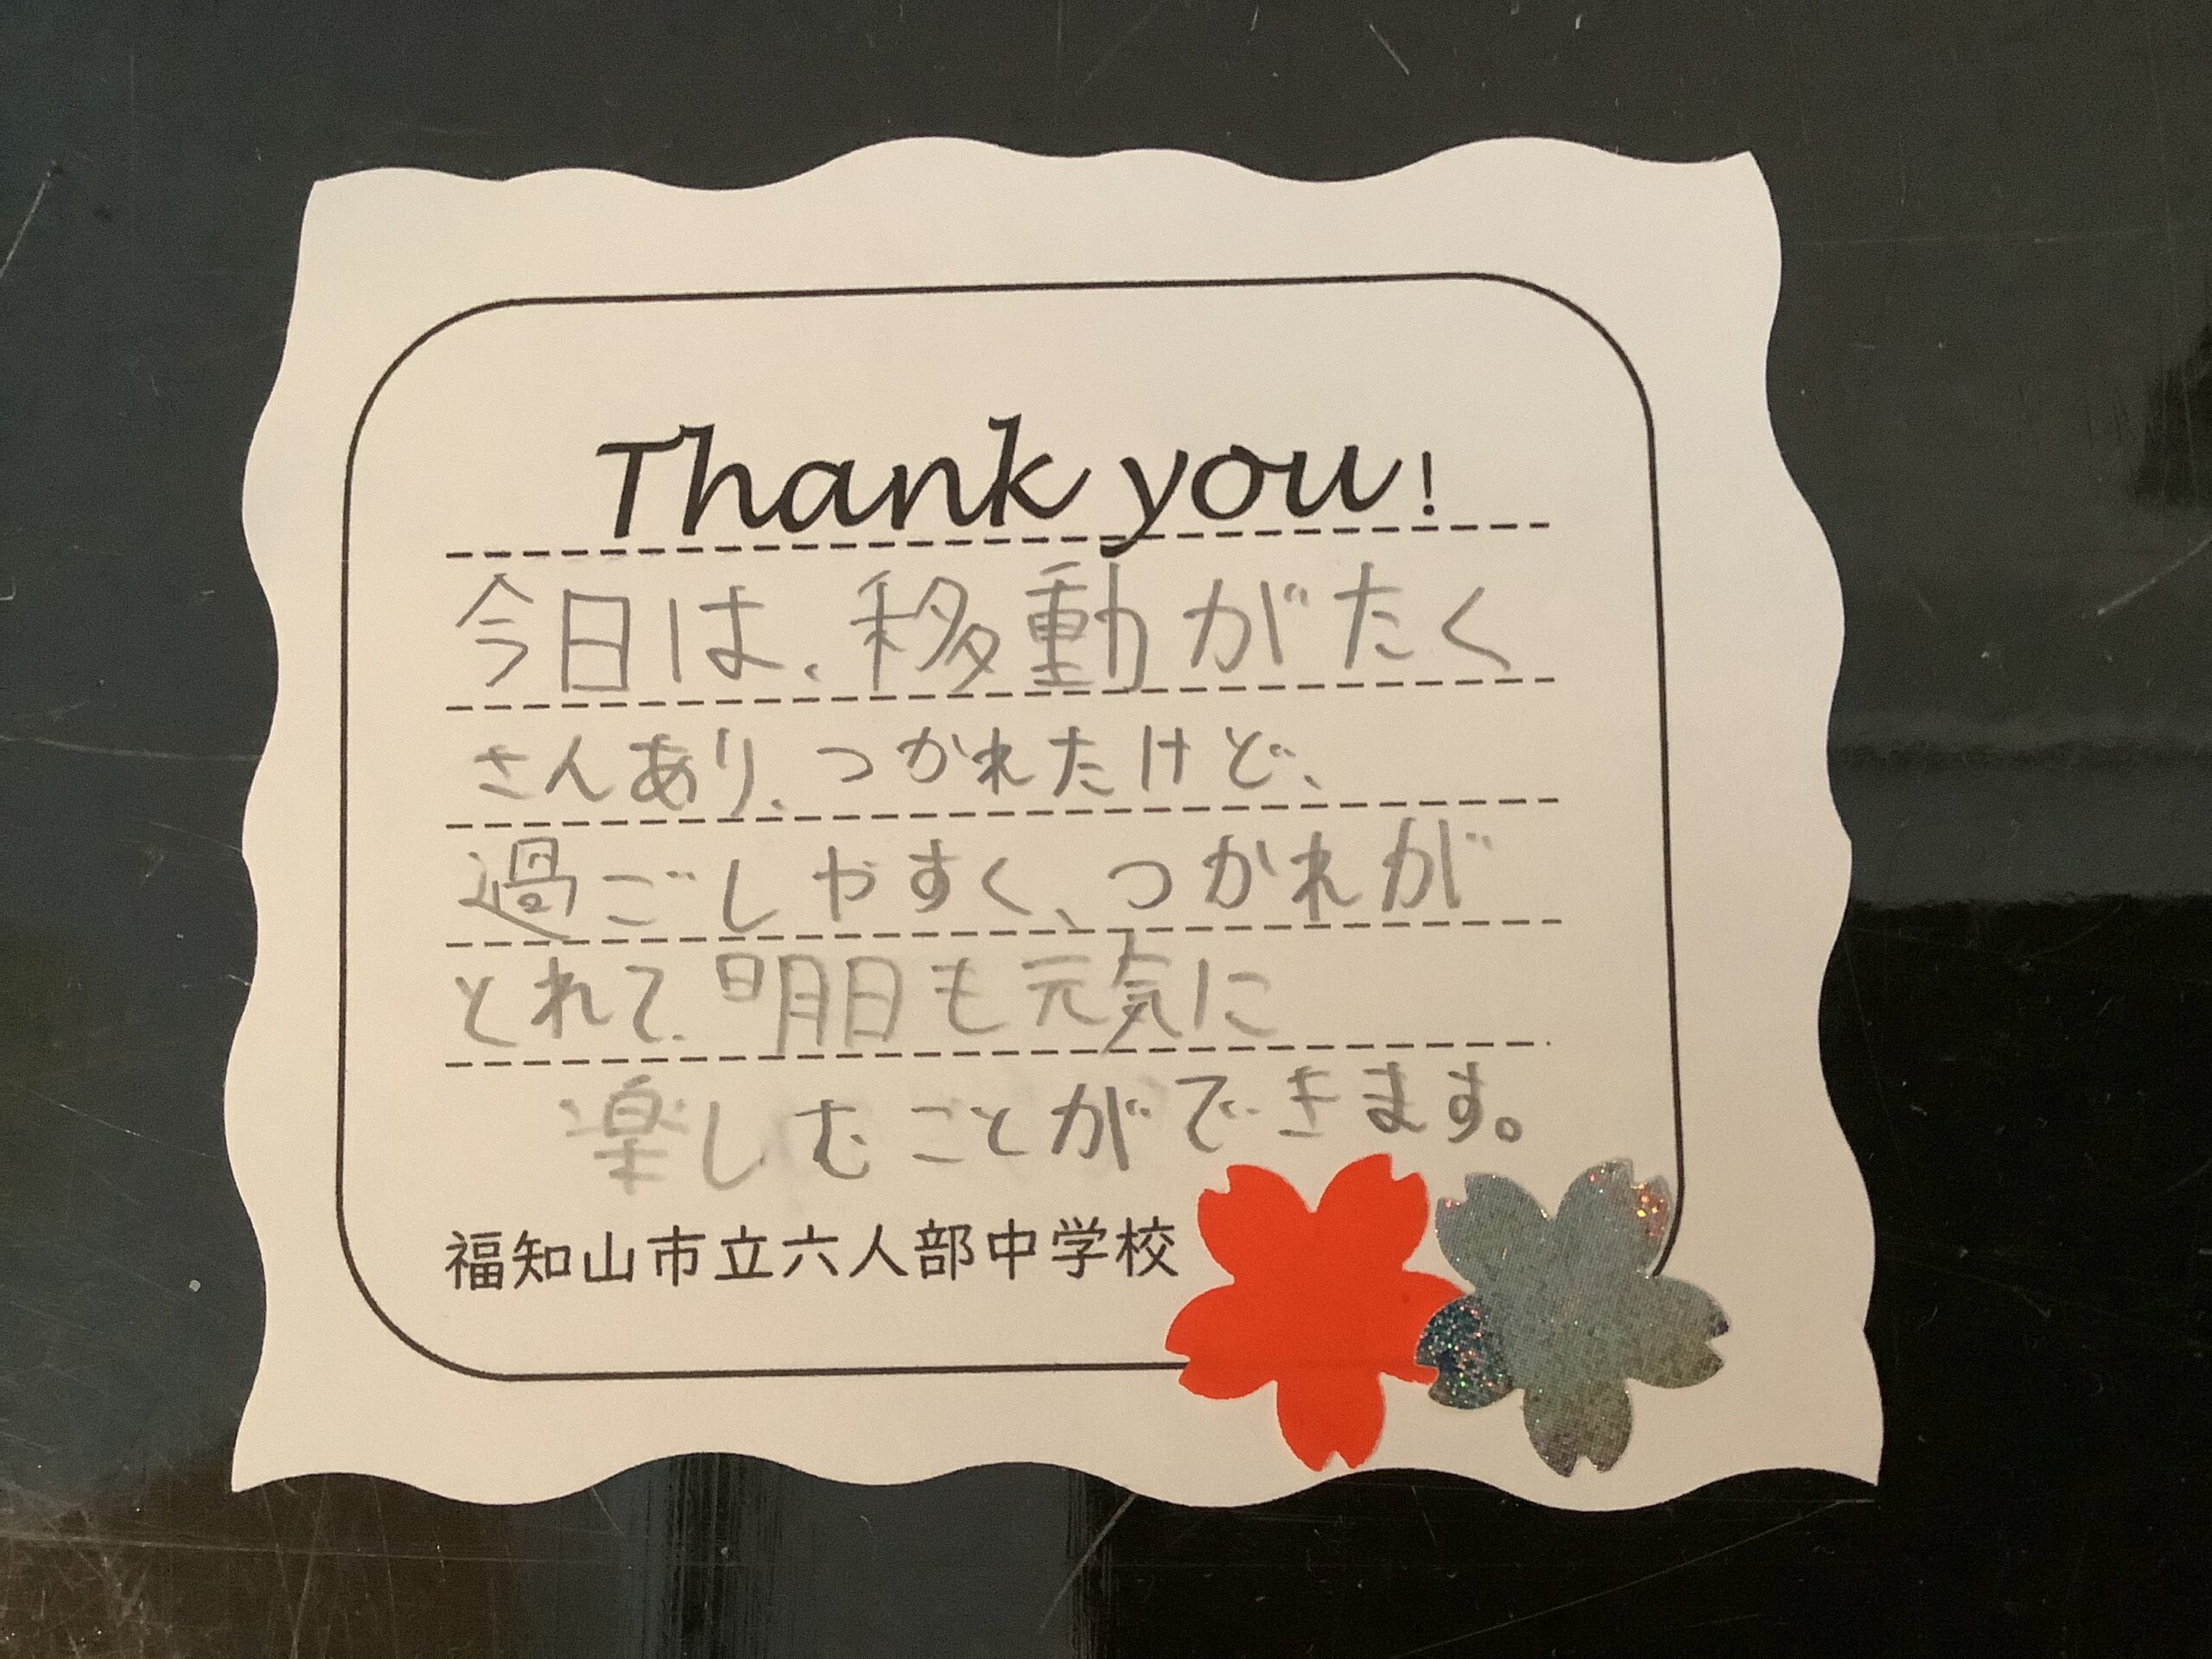 Thank you!
今日は、移動がたく
さんあり、つかれたけど、
過ごしやすく、つかれが
とれて、明日も元気に
楽しむことができます。
福知山市立六人部中学校